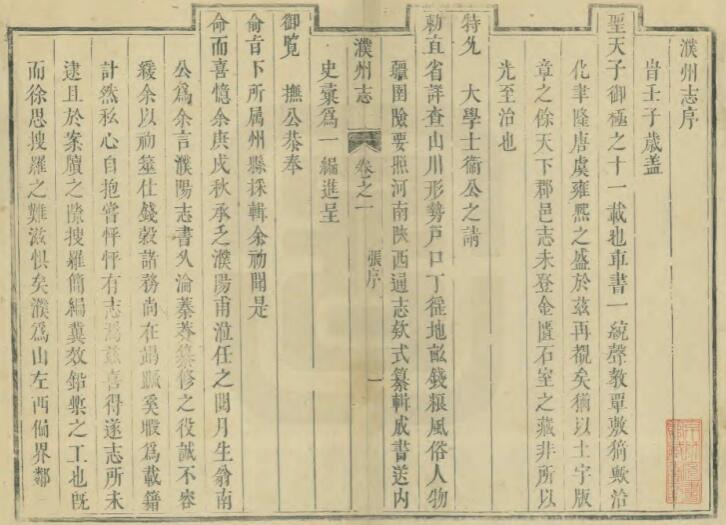 濮州志序
旹壬子歲蓋
聖天子御極之十一載也車書一統聲教覃敷猗歟洽
化聿隆唐虞雍熙之盛於茲再覩矣猶以土宇版
章之餘天下郡邑志未登金匱石室之藏非所以
光至治也
特允 大學士衞公之請
勅直省詳查山川形勢戸口丁徭地畝錢糧風俗人物
疆圉險要照河南陝西通志欵式纂輯成書送内
濮州志 卷之一 張序 一
史彙爲一編進呈
御覧 撫公恭奉
俞旨下所属州縣採輯余初聞是
命而喜憶余庚戌秋承乏濮陽甫涖任之閱月生翁南
公爲余言濮陽志書久淪蓁莽纂修之役誠不容
緩余以初筮仕錢穀諸務尚在鞅奚暇爲載籍
計然私心自抱嘗怦怦有志焉茲喜得遂志所未
逮且於案牘之隙搜羅簡編冀效鉛槧之工也旣
而徐思搜羅之難滋惧矣濮爲山左西偏界鄰